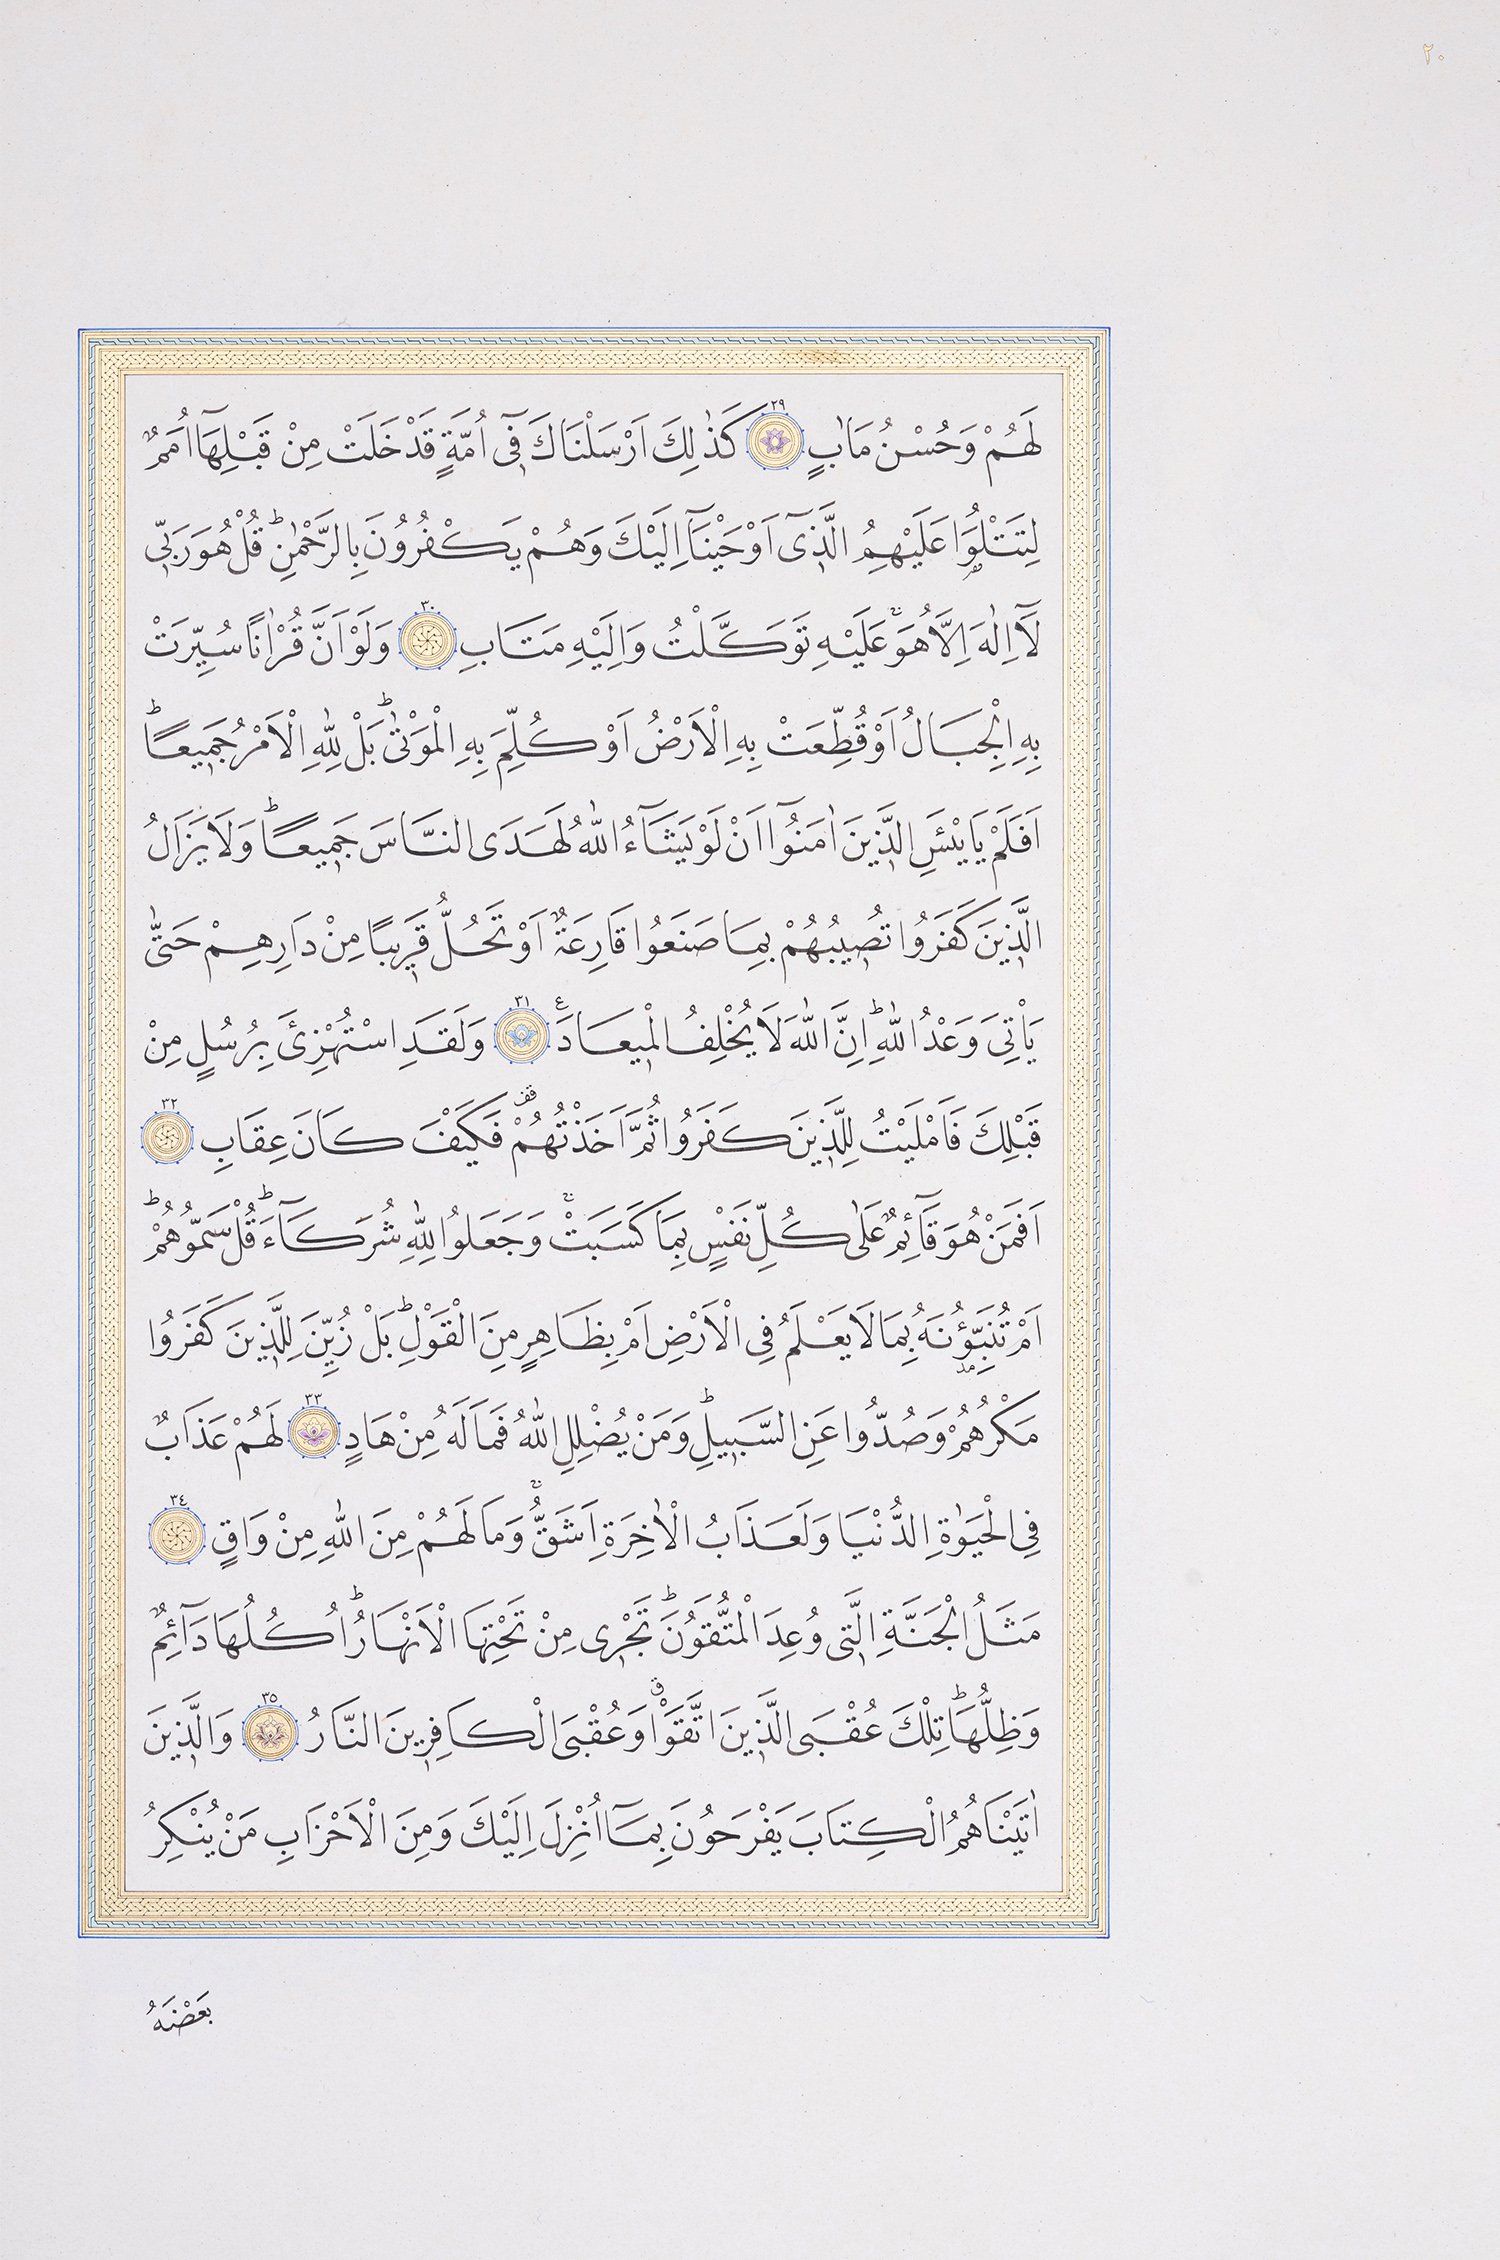 ٢٠
لَهُمْ وَحُسْنُ مَاٰبٍ ٢٩ كَذٰلِكَ اَرْسَلْنَاكَ فٖٓى اُمَّةٍ قَدْ خَلَتْ مِنْ قَبْلِهَٓا اُمَمٌ
لِتَتْلُوَ۬ا عَلَيْهِمُ الَّذٖٓى اَوْحَيْنَٓا اِلَيْكَ وَهُمْ يَكْفُرُونَ بِالرَّحْمٰنِؕ قُلْ هُوَ رَبّٖى
لَٓا اِلٰهَ اِلَّا هُوَۚ عَلَيْهِ تَوَكَّلْتُ وَاِلَيْهِ مَتَابِ ٣٠ وَلَوْ اَنَّ قُرْاٰنًا سُيِّرَتْ
بِهِ الْجِبَالُ اَوْ قُطِّعَتْ بِهِ الْاَرْضُ اَوْ كُلِّمَ بِهِ الْمَوْتٰىؕ بَلْ لِلّٰهِ الْاَمْرُ جَمٖيعًاؕ
اَفَلَمْ يَايْئَسِ الَّذٖينَ اٰمَنُٓوا اَنْ لَوْ يَشَٓاءُ اللّٰهُ لَهَدَى النَّاسَ جَمٖيعًاؕ وَلَا يَزَالُ
الَّذٖينَ كَفَرُوا تُصٖيبُهُمْ بِمَا صَنَعُوا قَارِعَةٌ اَوْ تَحُلُّ قَرٖيبًا مِنْ دَارِهِمْ حَتّٰى
يَاْتِىَ وَعْدُ اللّٰهِؕ اِنَّ اللّٰهَ لَا يُخْلِفُ الْمٖيعَادَ ع ٣١ وَلَقَدِ اسْتُهْزِئَ بِرُسُلٍ مِنْ
قَبْلِكَ فَاَمْلَيْتُ لِلَّذٖينَ كَفَرُوا ثُمَّ اَخَذْتُهُمْ قف فَكَيْفَ كَانَ عِقَابِ ٣٢
اَفَمَنْ هُوَ قَٓائِمٌ عَلٰى كُلِّ نَفْسٍ بِمَا كَسَبَتْۚ وَجَعَلُوا لِلّٰهِ شُرَكَٓاءَؕ قُلْ سَمُّوهُمْؕ
اَمْ تُنَبِّؤُ۫نَهُ بِمَا لَا يَعْلَمُ فِى الْاَرْضِ اَمْ بِظَاهِرٍ مِنَ الْقَوْلِؕ بَلْ زُيِّنَ لِلَّذٖينَ كَفَرُوا
مَكْرُهُمْ وَصُدُّوا عَنِ السَّبٖيلِؕ وَمَنْ يُضْلِلِ اللّٰهُ فَمَا لَهُ مِنْ هَادٍ ٣٣ لَهُمْ عَذَابٌ
فِى الْحَيٰوةِ الدُّنْيَا وَلَعَذَابُ الْاٰخِرَةِ اَشَقُّۚ وَمَا لَهُمْ مِنَ اللّٰهِ مِنْ وَاقٍ ٣٤
مَثَلُ الْجَنَّةِ الَّتٖى وُعِدَ الْمُتَّقُونَؕ تَجْرٖى مِنْ تَحْتِهَا الْاَنْهَارُؕ اُكُلُهَا دَٓائِمٌ
وَظِلُّهَاؕ تِلْكَ عُقْبَى الَّذٖينَ اتَّقَوْاࣗ وَعُقْبَى الْكَافِرٖينَ النَّارُ ٣٥ وَالَّذٖينَ
اٰتَيْنَاهُمُ الْكِتَابَ يَفْرَحُونَ بِمَٓا اُنْزِلَ اِلَيْكَ وَمِنَ الْاَحْزَابِ مَنْ يُنْكِرُ
بَعْضَهُ